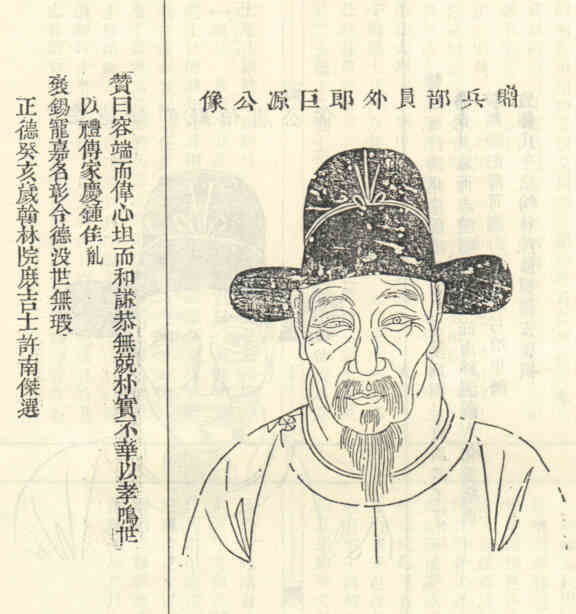 贈兵部員外郎巨源公像
贊曰容端而偉心坦而和謙恭無競朴實不華以孝鳴世
以禮傳家慶鍾佳胤
褒錫寵嘉名彰令德没世無瑕
正德癸亥歲翰林院庶吉士許南傑選